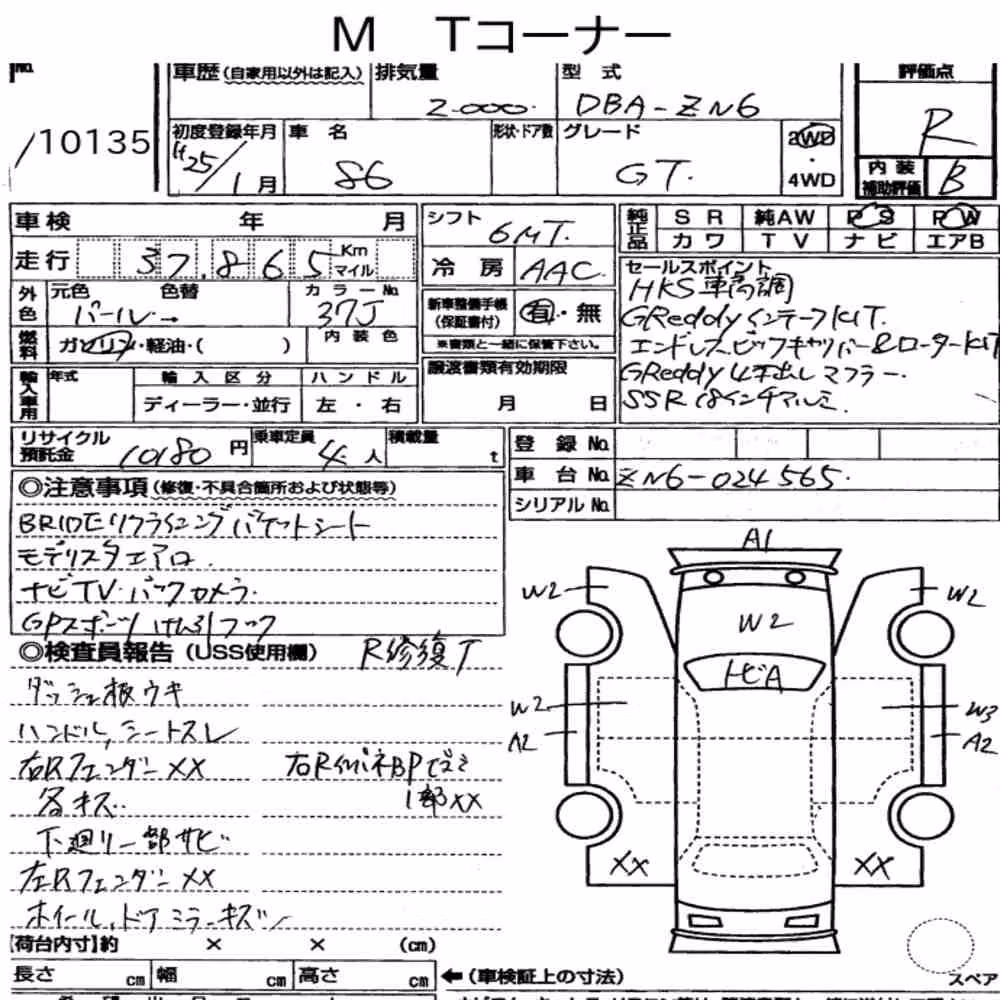 M Tコーナー
No.
車歴(自家用以外は記入) 排気量 型式 評価点
2000. DBA-ZN6 R
/10135
初度登録年月 車名 形状・ドア数 グレード 2WD・4WD
H25/1月 86 GT.
内装補助評価 B
車検 年 月 シフト 6MT.
純正品 SR 純AW PS PW
カワ TV ナビ エアB
走行 37.865 Km マイル 冷房 AAC
外色 元色 色替 カラーNo.
パール→ 37J
新車整備手帳(保証書付) 有・無
※書類と一緒に保管下さい。
燃料 ガソリン・軽油・( ) 内装色
セールスポイント
HKS車高調
GReddyインテークKIT.
エンドレスビッグキャリパー&ローターKIT
GReddy 4本出しマフラー.
SSR 18インチアルミ.
輸入車用 年式 輸入区分 ハンドル
ディーラー・並行 左・右
譲渡書類有効期限
月 日
リサイクル預託金 10180円 乗車定員 4人 積載量 t
登録No.
車台No. ZN6-024565.
シリアルNo.
◎注意事項(修復・不具合箇所および状態等)
BRIDEリクライニングバケットシート
モデリスタエアロ.
ナビTV・バックカメラ.
GPスポーツけん引フック
◎検査員報告(USS使用欄) R修復T
ダッシュ板ウキ
ハンドル,シートスレ
右Rフェンダー××
右RインパネBPゴミ
各キズ.
1部××
下廻り一部サビ
左Rフェンダー××
ホイール,ドアミラーキズ
A1
W2 W2
W2
トビA
W2 W3
A2 A2
×× ××
スペア
【荷台内寸】約 × × (cm)
長さ cm 幅 cm 高さ cm ←(車検証上の寸法)